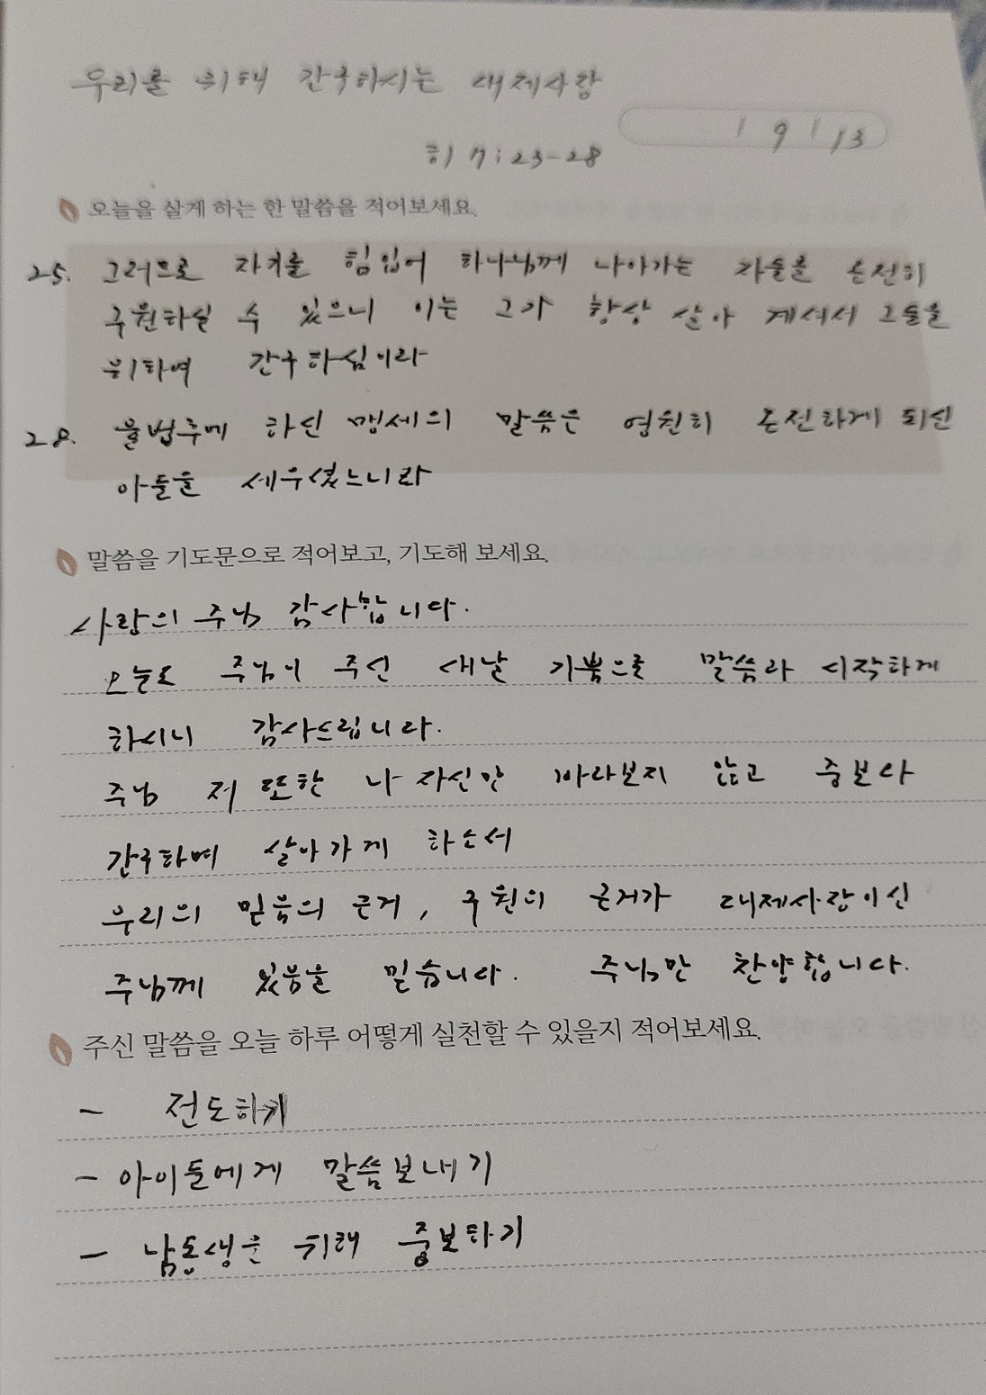 우리를 위해 간구하시는 대제사장
19 1 13
히 7:23-28
오늘을 살게 하는 한 말씀을 적어보세요.
25. 그러므로 자기를 힘입어 하나님께 나아가는 자들을 온전히
구원하실 수 있으니 이는 그가 항상 살아 계셔서 그들을
위하여 간구하심이라
28. 율법후에 하신 맹세의 말씀은 영원히 온전하게 되신
아들을 세우셨느니라
말씀을 기도문으로 적어보고, 기도해 보세요.
사랑의 주님 감사합니다.
오늘도 주님이 주신 새날 기쁨으로 말씀과 시작하게
하시니 감사드립니다.
주님 저 또한 나 자신만 바라보지 않고 중보다
간구하며 살아가게 하소서
우리의 믿음의 근거, 구원의 근거가 대제사장이신
주님께 있음을 믿습니다. 주님만 찬양합니다.
주신 말씀을 오늘 하루 어떻게 실천할 수 있을지 적어보세요.
- 전도하기
- 아이들에게 말씀보내기
- 남동생을 위해 중보하기